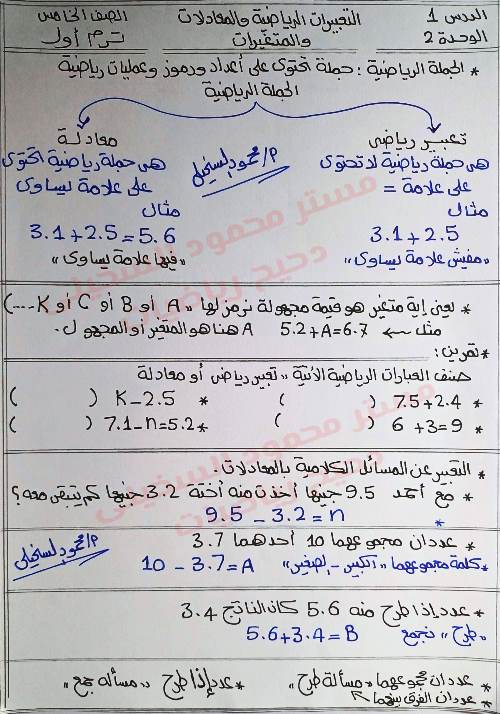 الدرس 1 التعبيرات الرياضية والمعادلات الصف الخامس
الوحدة 2 والمتغيرات ترم أول
* الجملة الرياضية : جملة تحتوى على أعداد ورموز وعمليات رياضية
الجملة الرياضية
تعبير رياضى معادلة
هى جملة رياضية لا تحتوى هى جملة رياضية تحتوى
على علامة = على علامة يساوى
مثال مثال
3.1 + 2.5 3.1 + 2.5 = 5.6
"مفيش علامة يساوى" "فيها علامة يساوى"
م/ محمود السخيلى
مستر محمود السخيلى
دحيح رياضيات
* يعنى إية متغير هو قيمة مجهولة نرمز لها " A أو B أو C أو K ....)
مثل ← 5.2 + A = 6.7 A هنا هو المتغير أو المجهول .
* تمرين :
صنف العبارات الرياضية الآتية " تعبير رياضى أو معادلة
* 7.5 + 2.4 ( ) * K - 2.5 ( )
* 6 + 3 = 9 ( ) * 7.1 - n = 5.2 ( )
مستر محمود السخيلى
* التعبير عن المسائل الكلامية بالمعادلات .
* مع أحمد 9.5 جنيها أخذت منه أخته 3.2 جنيها كم يتبقى معه ؟
* 9.5 - 3.2 = n
* عددان مجموعهما 10 أحدهما 3.7
* كلمة مجموعهما "الكبير - الصغير" 10 - 3.7 = A
م/ محمود السخيلى
* عدد إذا طرح منه 5.6 كان الناتج 3.4
"طرح" نجمع 5.6 + 3.4 = B
* عددان مجموعهما " مسألة طرح" * عدد إذا طرح " مسألة جمع "
* عددان الفرق بينهما